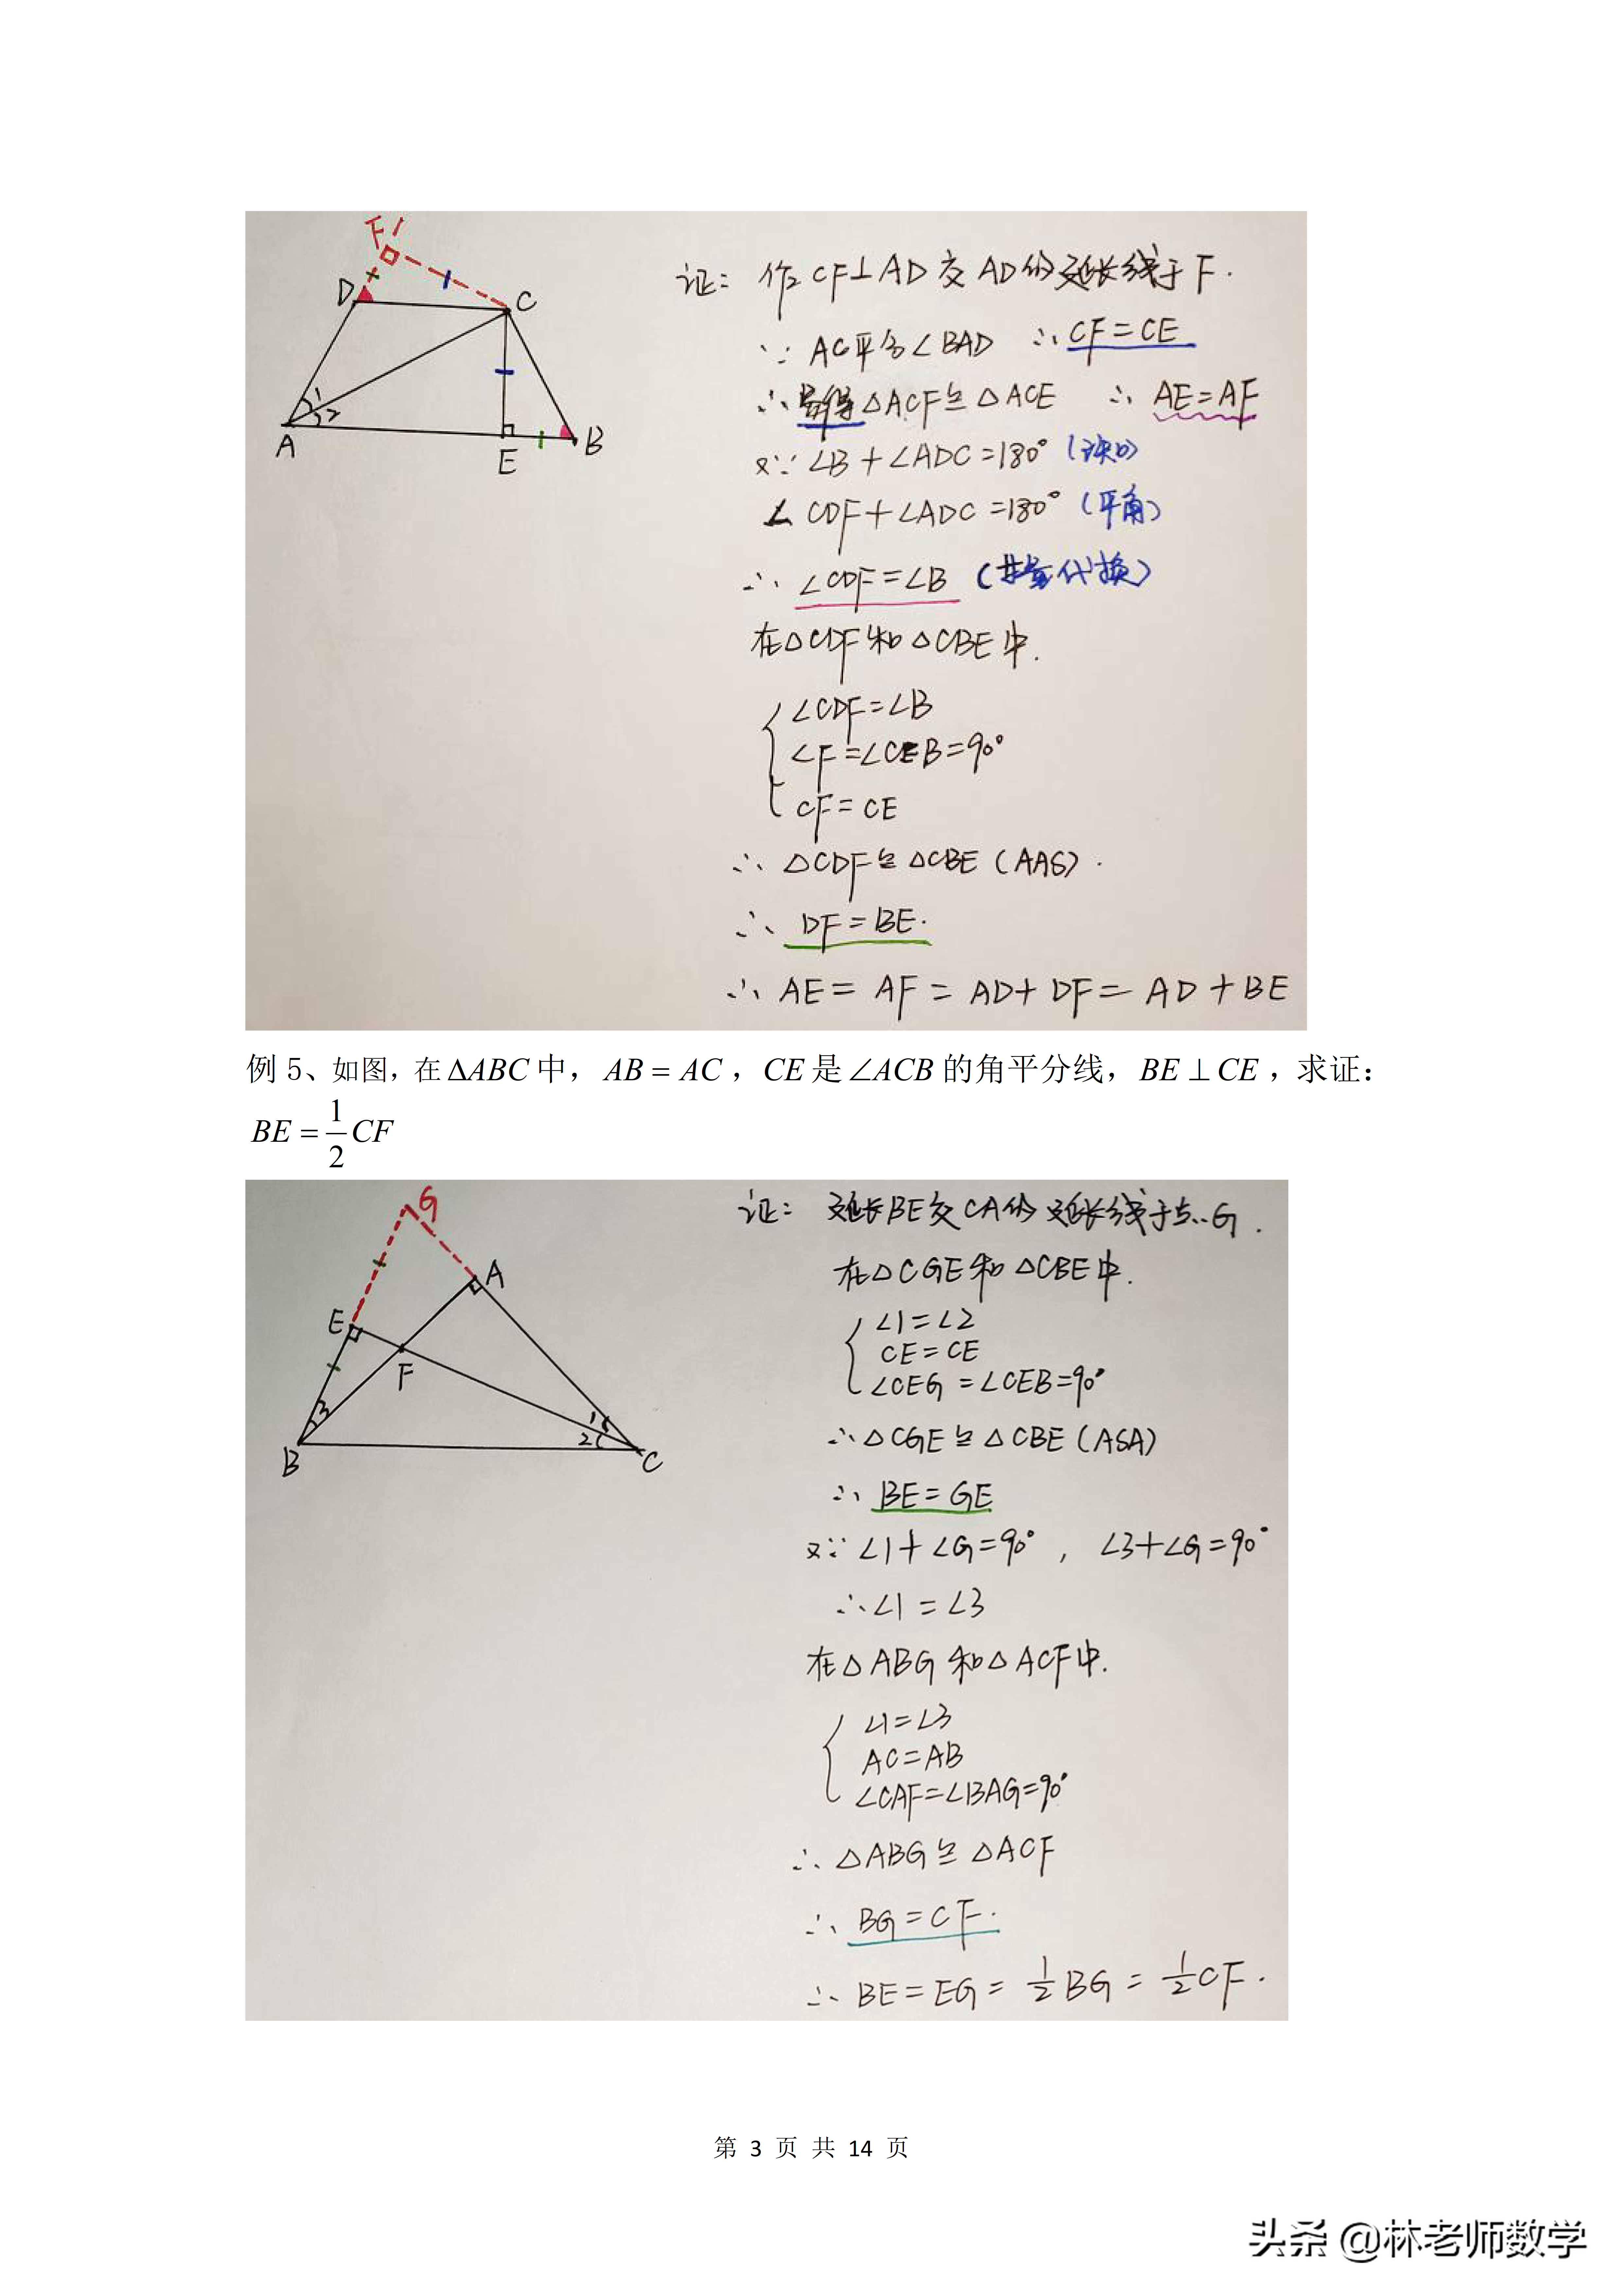 F
D
C
1
2
A
E
B
证: 作 CF⊥AD 交 AD 的延长线于 F.
∵ AC平分∠BAD ∴ CF=CE
∴ 易得△ACF≌△ACE ∴ AE=AF
又∵ ∠B+∠ADC=180° (已知)
∠CDF+∠ADC=180° (平角)
∴ ∠CDF=∠B (等量代换)
在△CDF和△CBE中.
∠CDF=∠B
∠F=∠CEB=90°
CF=CE
∴ △CDF≌△CBE (AAS).
∴ DF=BE.
∴ AE=AF=AD+DF=AD+BE
例 5、如图，在ΔABC中，AB = AC，CE是∠ACB的角平分线，BE ⊥ CE，求证：
BE = 1/2 CF
G
A
E
F
3
1
2
B
C
证: 延长BE交CA的延长线于点G.
在△CGE和△CBE中.
∠1=∠2
CE=CE
∠CEG=∠CEB=90°
∴△CGE≌△CBE (ASA)
∴ BE=GE
又∵ ∠1+∠G=90°, ∠3+∠G=90°
∴∠1=∠3
在△ABG和△ACF中.
∠1=∠3
AC=AB
∠CAF=∠BAG=90°
∴ △ABG≌△ACF
∴ BG=CF.
∴ BE=EG=1/2 BG=1/2 CF.
第 3 页 共 14 页
头条 @林老师数学